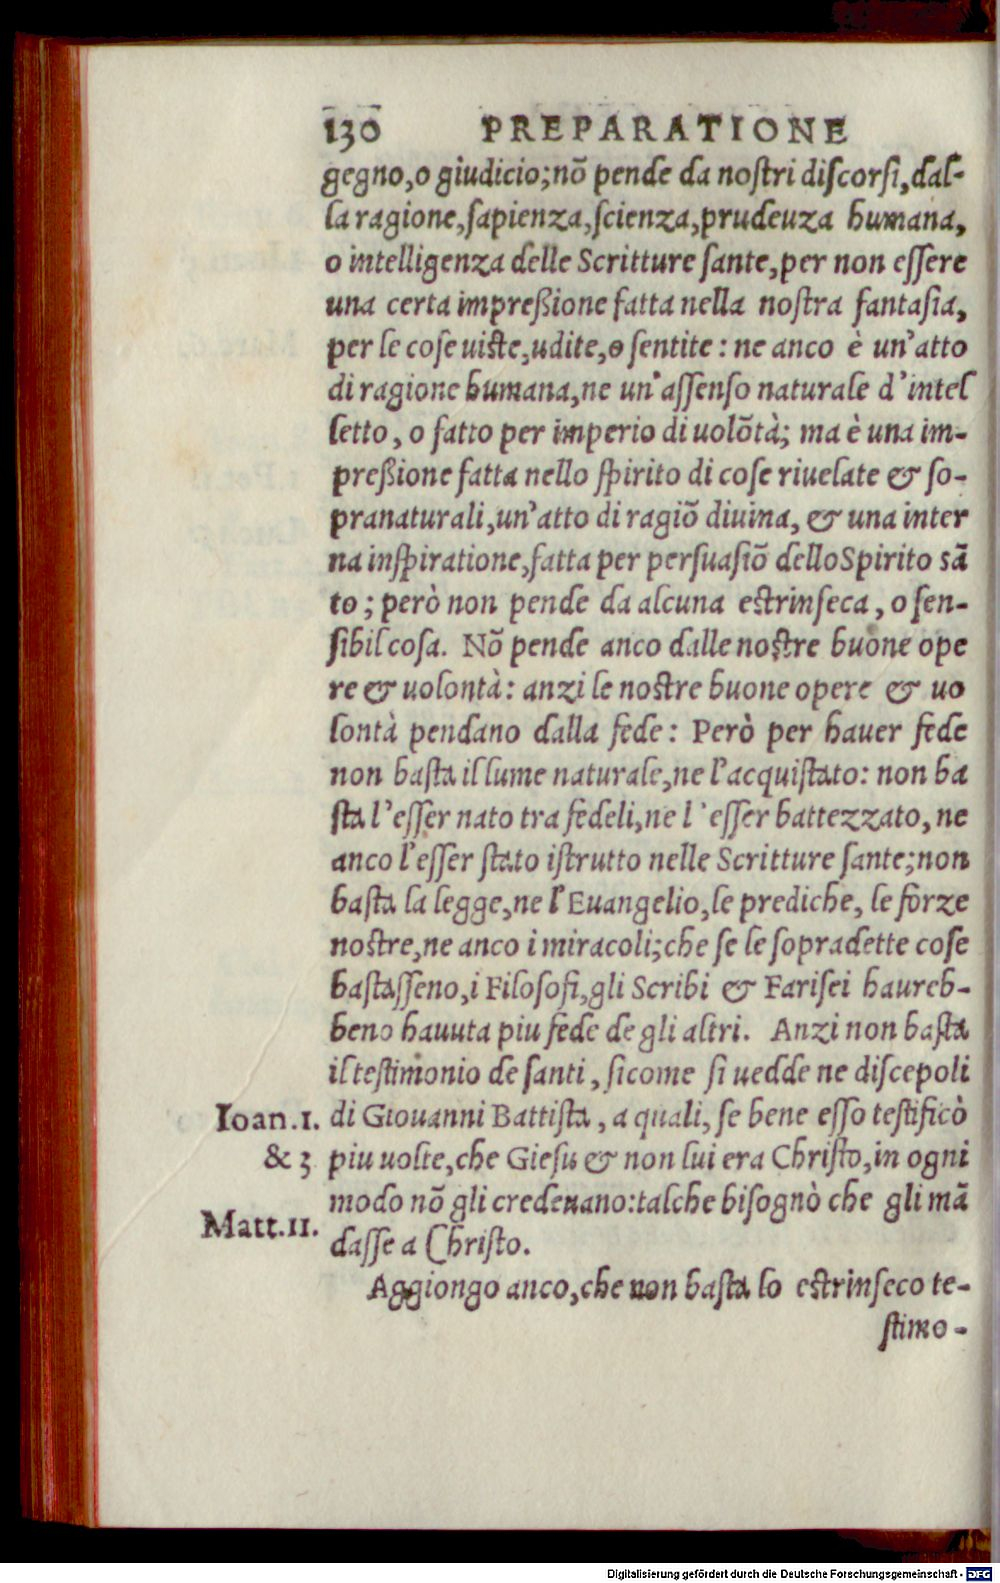 130 PREPARATIONE
gegno,o giudicio;nō pende da nostri discorsi,dal-
la ragione,sapienza,scienza,prudeuza humana,
o intelligenza delle Scritture sante,per non essere
una certa impreßione fatta nella nostra fantasia,
per le cose uiste,udite,o sentite: ne anco è un'atto
di ragione humana,ne un'assenso naturale d'intel
letto, o fatto per imperio di uolōtà; ma è una im-
preßione fatta nello spirito di cose riuelate & so-
pranaturali,un'atto di ragiō diuina, & una inter
na inspiratione,fatta per persuasiō dello Spirito sā
to; però non pende da alcuna estrinseca, o sen-
sibil cosa. Nō pende anco dalle nostre buone ope
re & uolontà: anzi le nostre buone opere & uo
lontà pendano dalla fede: Però per hauer fede
non basta il lume naturale,ne l'acquistato: non ba
sta l'esser nato tra fedeli,ne l'esser battezzato, ne
anco l'esser stato istrutto nelle Scritture sante;non
basta la legge,ne l'Euangelio,le prediche, le forze
nostre,ne anco i miracoli;che se le sopradette cose
bastasseno,i Filosofi,gli Scribi & Farisei haureb-
beno hauuta piu fede de gli altri. Anzi non basta
il testimonio de santi, sicome si uedde ne discepoli
Ioan.1. di Giouanni Battista, a quali, se bene esso testificò
& 3 piu uolte,che Giesu & non lui era Christo,in ogni
modo nō gli credeuano:talche bisognò che gli mā
Matt.11. dasse a Christo.
Aggiongo anco,che non basta lo estrinseco te-
stimo-
Digitalisierung gefördert durch die Deutsche Forschungsgemeinschaft - DFG